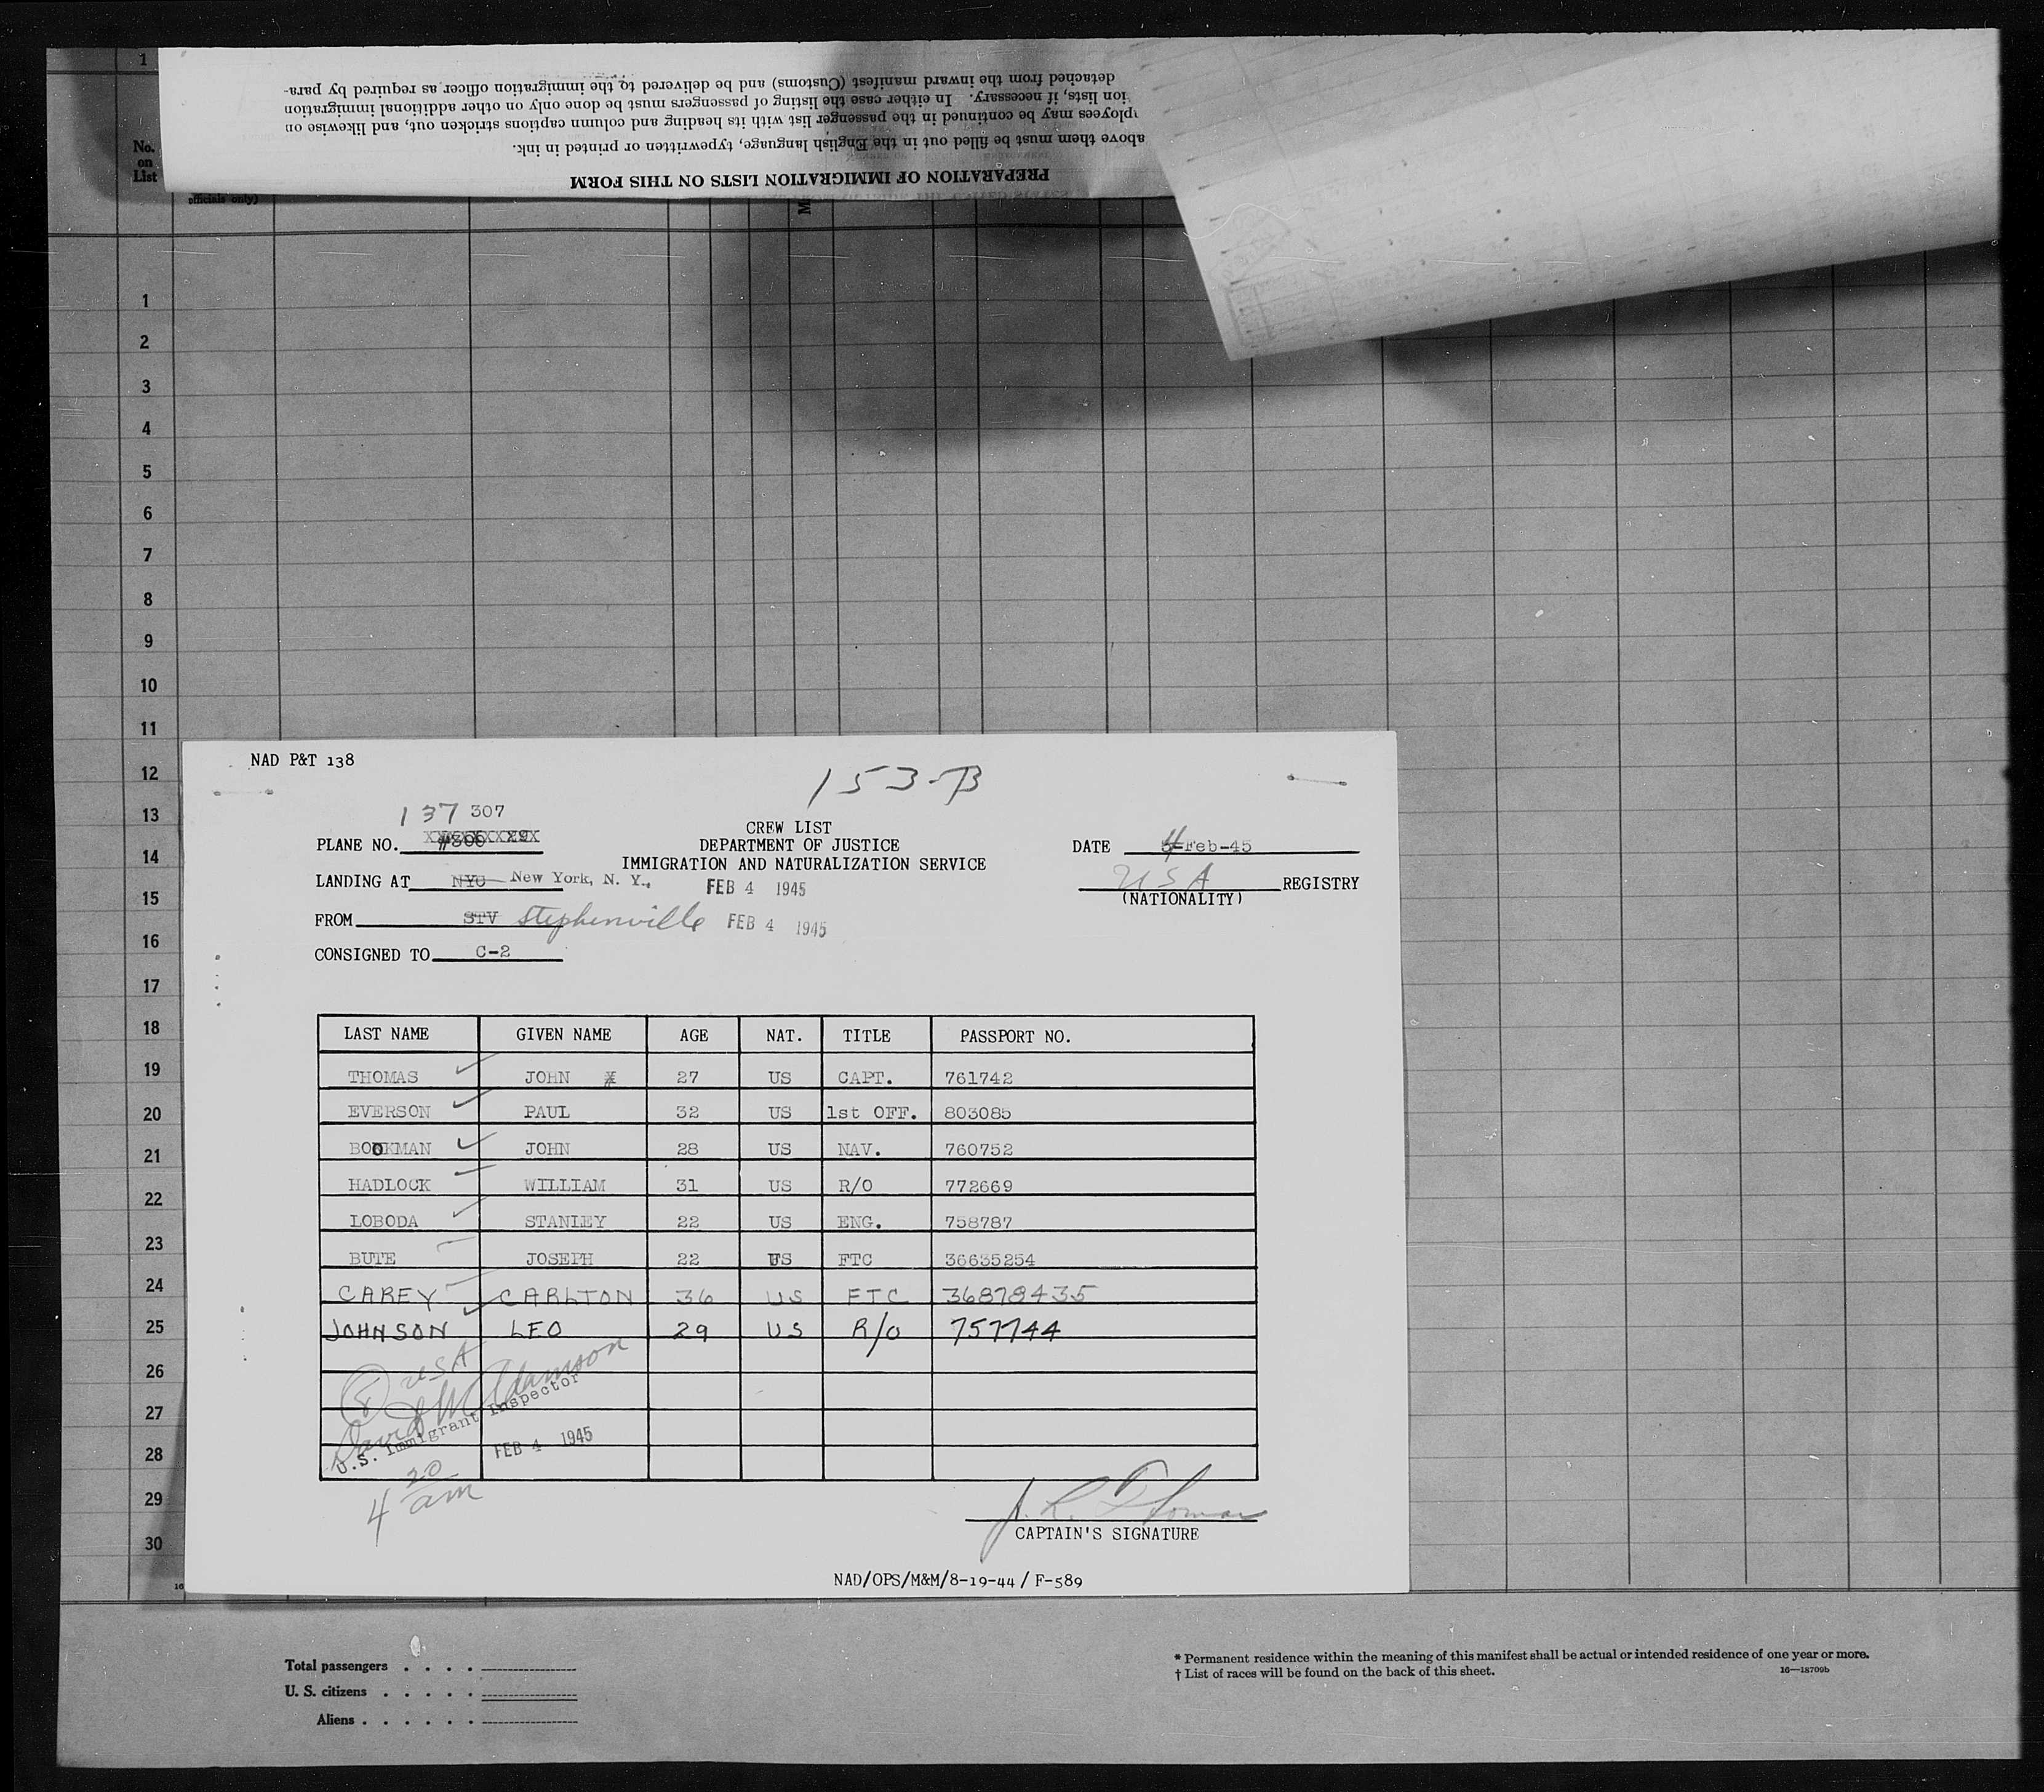 1
detached from the inward manifest (Customs) and be delivered to the immigration officer as required by para-
ion lists, if necessary. In either case the listing of passengers must be done only on other additional immigration
ployees may be continued in the passenger list with its heading and column captions stricken out, and likewise on
above them must be filled out in the English language, typewritten or printed in ink.
PREPARATION OF IMMIGRATION LISTS ON THIS FORM
No.
on
List
officials only)
M
1
2
3
4
5
6
7
8
9
10
11
12
13
14
15
16
17
18
19
20
21
22
23
24
25
26
27
28
29
30
NAD P&T 138
153-B
137 307
PLANE NO. #306
CREW LIST
DEPARTMENT OF JUSTICE
IMMIGRATION AND NATURALIZATION SERVICE
DATE 4 Feb-45
LANDING AT NYC New York, N. Y., FEB 4 1945
USA REGISTRY
(NATIONALITY)
FROM STV Stephenville FEB 4 1945
CONSIGNED TO C-2
LAST NAME GIVEN NAME AGE NAT. TITLE PASSPORT NO.
THOMAS JOHN 27 US CAPT. 761742
EVERSON PAUL 32 US 1st OFF. 803085
BOOKMAN JOHN 28 US NAV. 760752
HADLOCK WILLIAM 31 US R/O 772669
LOBODA STANLEY 22 US ENG. 758787
BUTE JOSEPH 22 US FTC 36635254
CAREY CARLTON 36 US FTC 36878435
JOHNSON LEO 29 US R/O 757744
8 USA
David W Adamson
U.S. Immigrant Inspector
FEB 4 1945
4 20 am
J. R. Thomas
CAPTAIN'S SIGNATURE
NAD/OPS/M&M/8-19-44 / F-589
16
Total passengers . . . .
U. S. citizens . . . . .
Aliens . . . . . .
* Permanent residence within the meaning of this manifest shall be actual or intended residence of one year or more.
† List of races will be found on the back of this sheet.
16—18709b